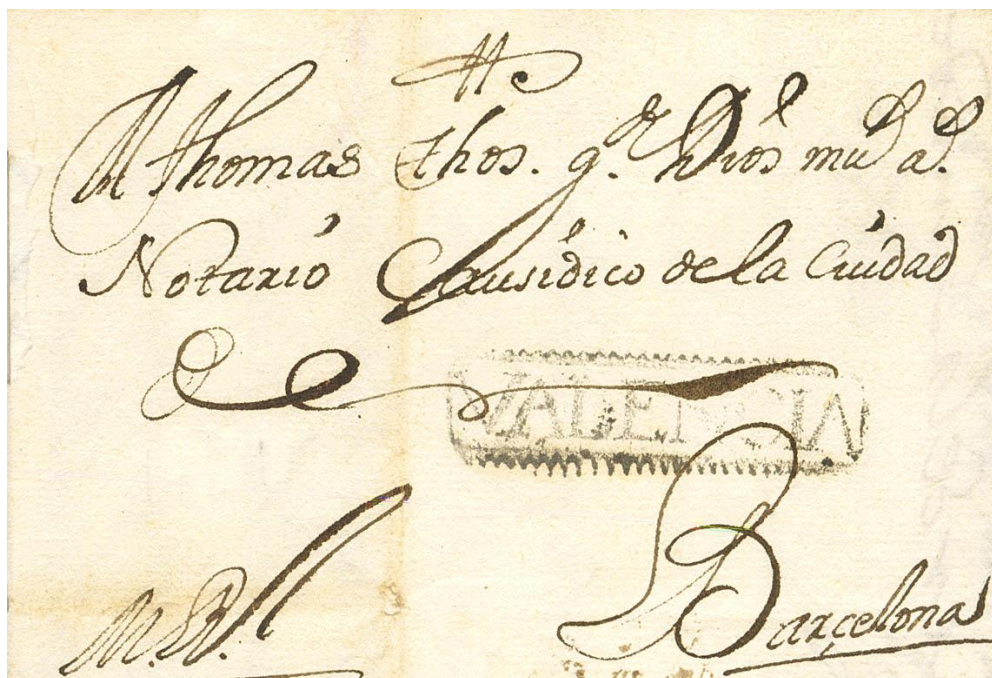 A Thomas Thos. g.e Dios mu.s a.s
Notario Causidico de la Ciudad
de
VALENCIA
Barçelona